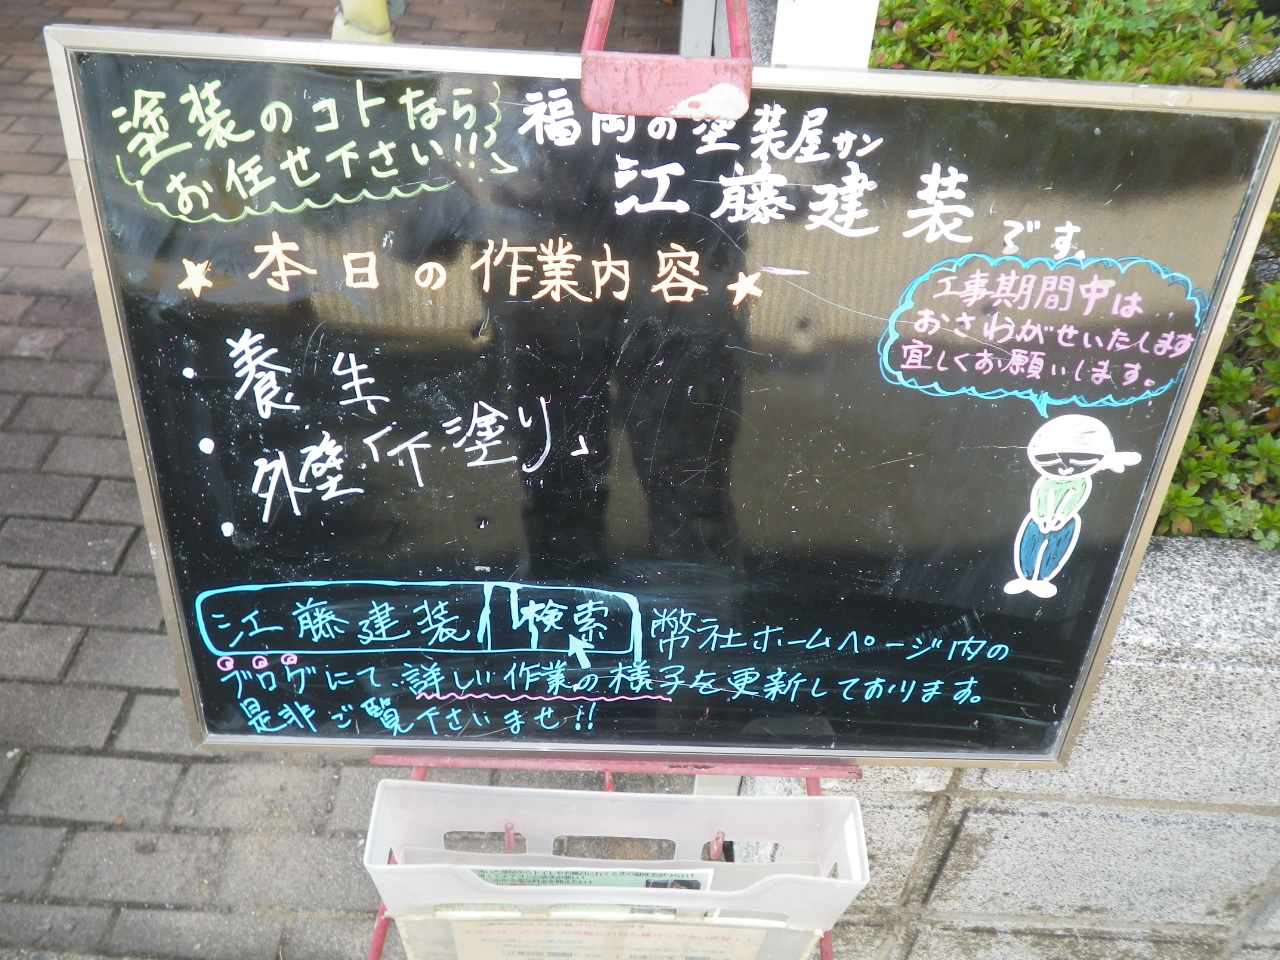 塗装のコトなら
お任せ下さい!!
福岡の塗装屋サン
江藤建装です。
★本日の作業内容★
工事期間中は
おさわがせいたします
宜しくお願いします。
・養生
・外壁「下塗り」
・
江藤建装 検索 弊社ホームページ内の
ブログにて、詳しい作業の様子を更新しております。
是非ご覧下さいませ!!